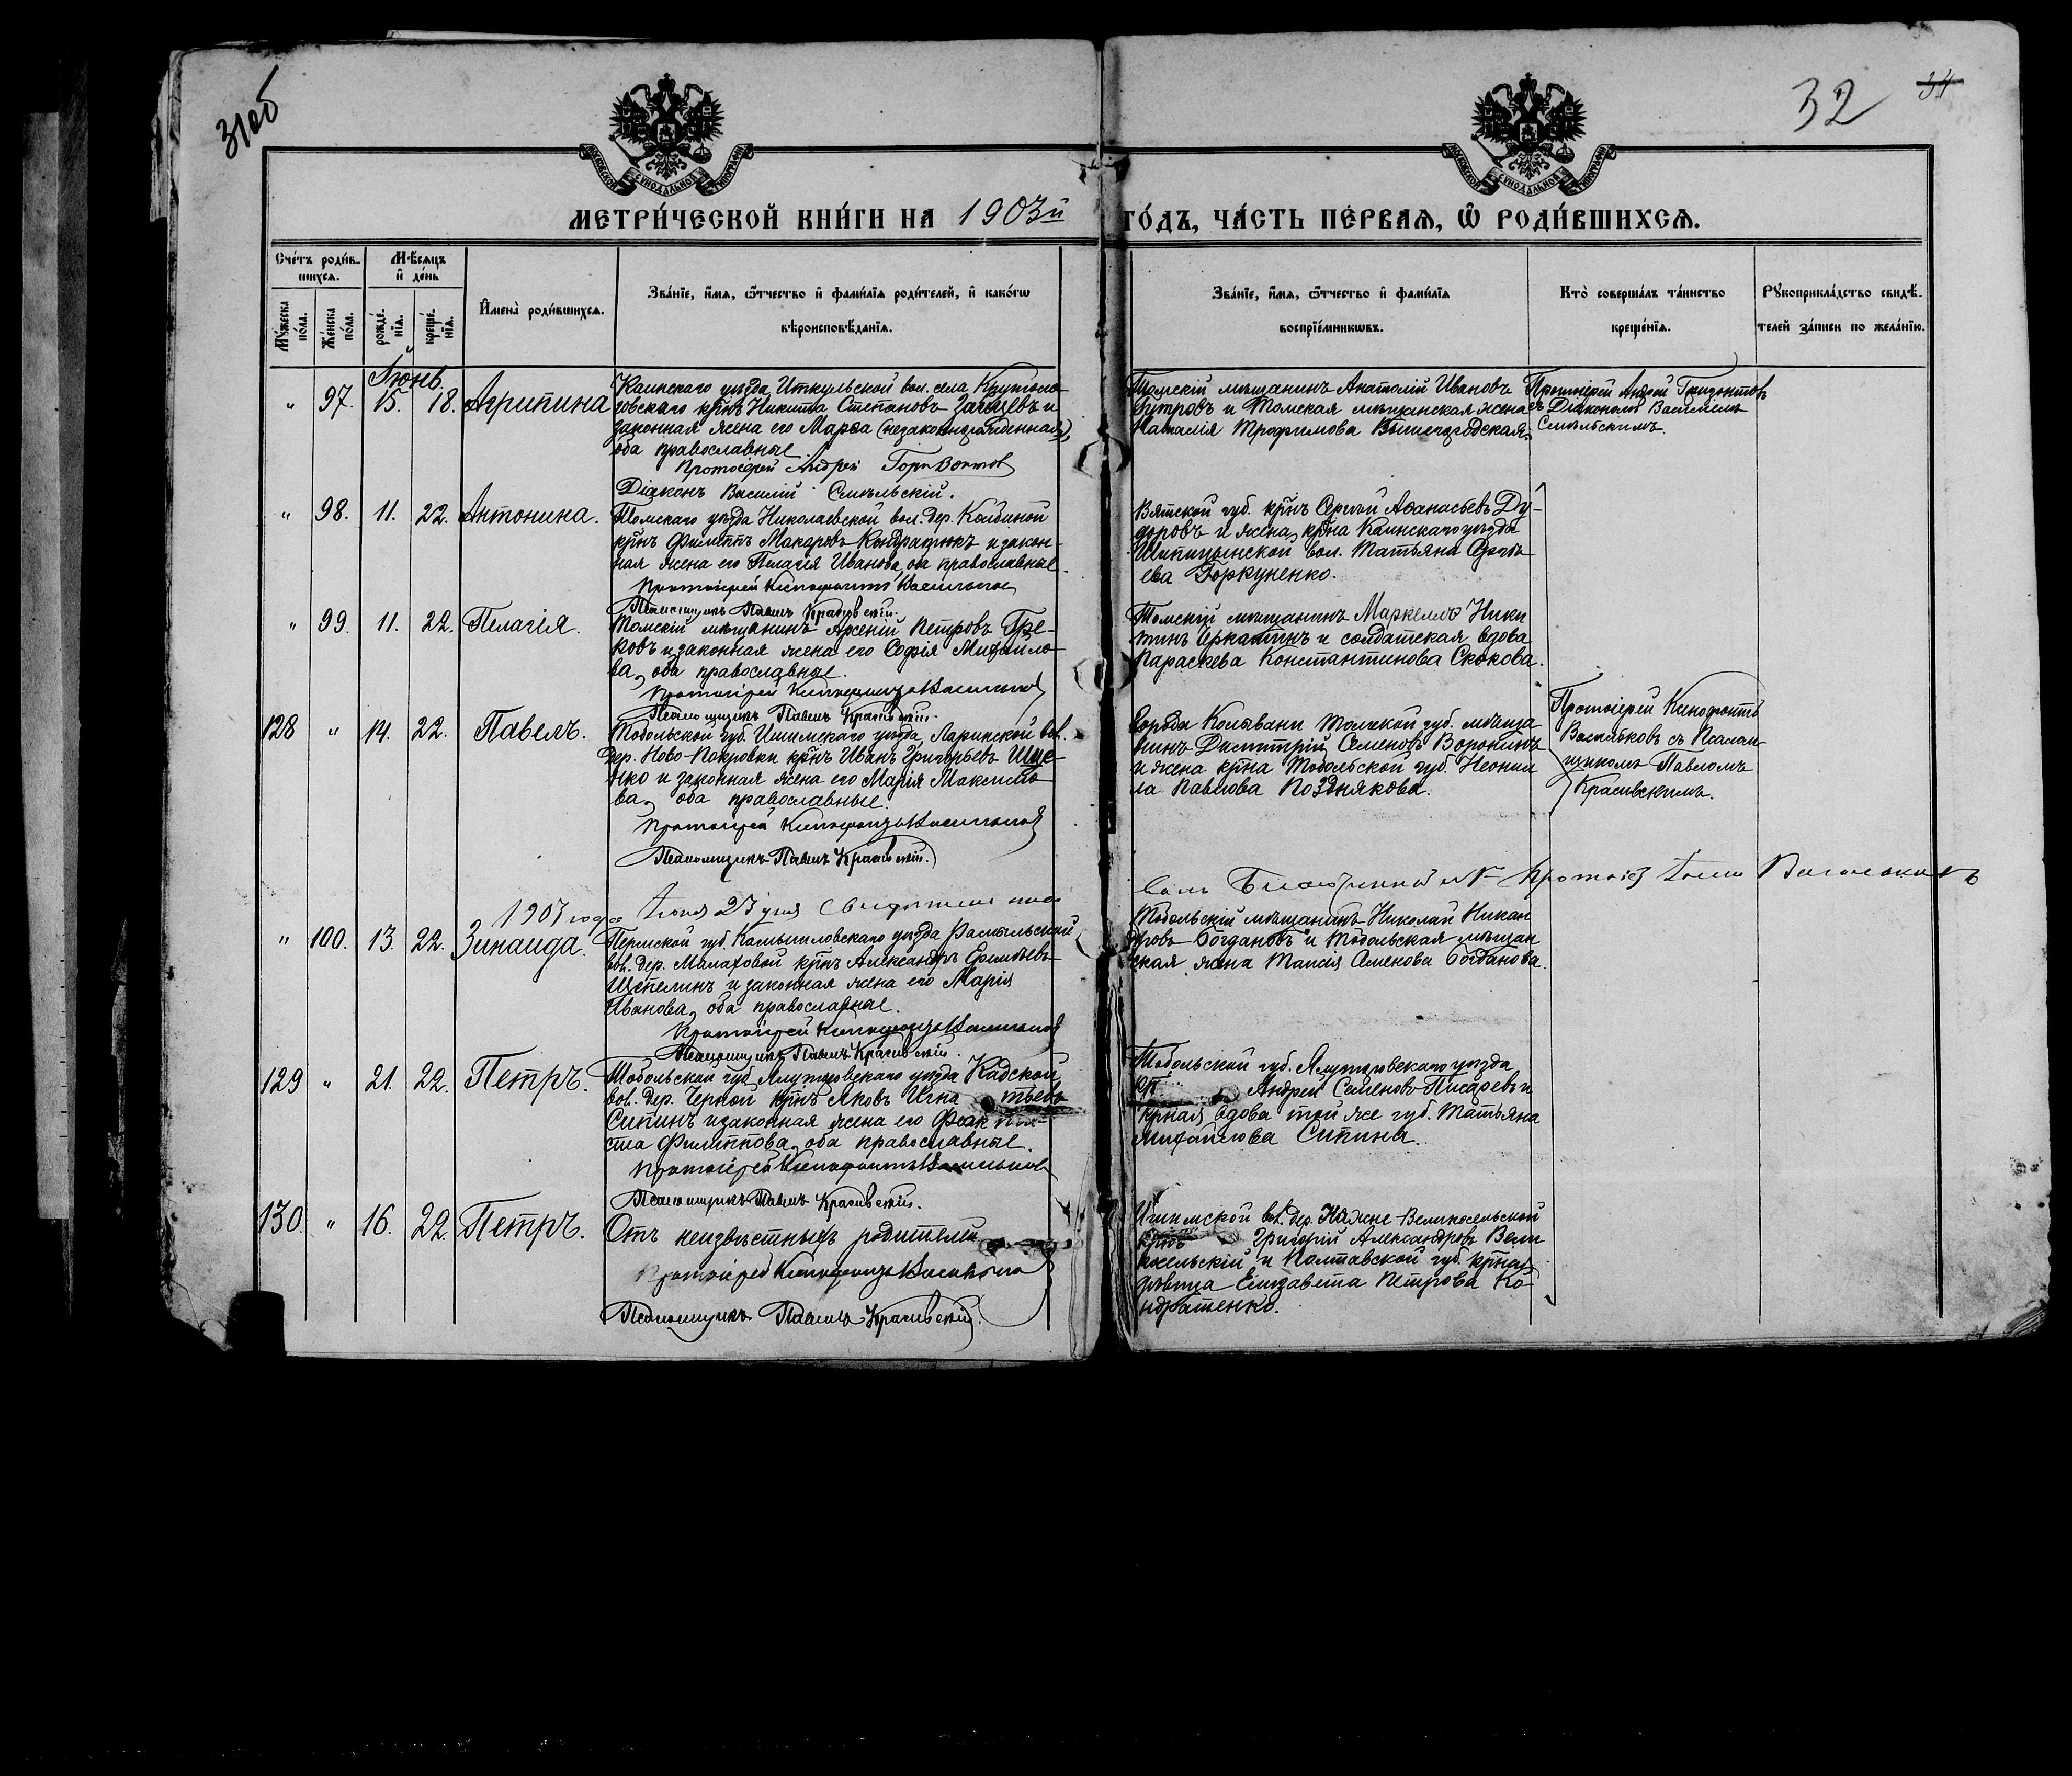 31об
32
34
МОСКОВСКОЙ СѴНОДАЛЬНОЙ ТИПОГРАФІИ
МОСКОВСКОЙ СѴНОДАЛЬНОЙ ТИПОГРАФІИ
МЕТРИ́ЧЕСКОЙ КНИ́ГИ НА 1903й ГО́ДЪ, ЧА́СТЬ ПЕ́РВАѦ, Ѽ РОДИ́ВШИХСѦ.
Сче́тъ роди́в-
шихсѧ.
Мꙋ́жеска по́ла.
Же́нска по́ла.
Мѣ́сѧцъ
и҆ де́нь
рожде́-
нїѧ.
креще́-
нїѧ.
И҆мена̀ роди́вшихсѧ.
Зва́нїе, и҆́мѧ, ѻ҆́тчество и҆ фами́лїѧ роди́телей, и҆ како́гѡ
вѣроисповѣ́данїѧ.
Зва́нїе, и҆́мѧ, ѻ҆́тчество и҆ фами́лїѧ
воспрїе́мникѡвъ.
Кто̀ соверша́лъ та́инство
креще́нїѧ.
Рꙋкоприкла́дство свидѣ́-
телей за́писи по жела́нїю.
Іюнь.
" 97. 15. 18. Агрипина
Каинскаго уѣзда, Иткульской вол. села Круголо-
зовскаго крнъ Никита Степановъ и
законная жена его Марѳа (незаконнорожденная),
оба православные.
Протоіерей Андрей
Діаконъ Василій Смѣльскій.
Томскій мѣщанинъ Анатолій Ивановъ
Бутровъ и Томская мѣщанская жена
Наталія Трофимова Вышегородская.
Протоіерей Андрей
съ Діакономъ Василіемъ
Смѣльскимъ.
" 98. 11. 22. Антонина.
Томскаго уѣзда Николаевской вол. дер. Койбиной
крнъ Филиппъ Макаровъ Кондратюкъ и закон-
ная жена его Пелагія Иванова, оба православные.
Протоіерей Кинофонтъ Васильковъ
Псаломщикъ Павелъ Красивскій.
Вятской губ. крнъ Сергѣй Аѳанасьевъ Ду-
доровъ и жена крна Каинскаго уѣзда
Шипицынской вол. Татьяна Сергѣ-
ева Горкуненко.
" 99. 11. 22. Пелагія.
Томскій мѣщанинъ Арсеній Петровъ Гре-
ковъ и законная жена его Софія Михайло-
ва, оба православные.
Протоіерей Кинофонтъ Васильковъ
Псаломщикъ Павелъ Красивскій.
Томскій мѣщанинъ Маркеллъ Ники
тинъ Иркатинъ и солдатская вдова
Параскева Константинова Скокова.
128 " 14. 22. Павелъ.
Тобольской губ. Ишимскаго уѣзда Ларинской вол.
дер. Ново-Покровки крнъ Иванъ Григорьевъ Ище-
нко и законная жена его Марія Максимо-
ва, оба православные.
Протоіерей Кинофонтъ Васильковъ
Псаломщикъ Павелъ Красивскій.
Города Колывани Томской губ. мѣща
нинъ Димитрій Семеновъ Воронинъ
и жена крна Тобольской губ. Неонил
ла Павлова Позднякова.
Протоіерей Кинофонтъ
Васильковъ съ Псалом-
щикомъ Павломъ
Красивскимъ.
1903 года Іюня 23 дня
Протоіер
" 100. 13. 22. Зинаида.
Пермской губ. Камышловскаго уѣзда
вол. дер. Малаховой крнъ Александръ
Щепелинъ и законная жена его Марія
Иванова, оба православные.
Протоіерей Кинофонтъ Васильковъ
Псаломщикъ Павелъ Красивскій.
Тобольскій мѣщанинъ Николай Никан
дровъ Богдановъ и Тобольская мѣщан
ская жена Таисія Семенова Богданова.
129 " 21. 22. Петръ.
Тобольской губ. Ялуторовскаго уѣзда Кадской
вол. дер. Черной крнъ Яковъ Игна тьевъ
Сипинъ и законная жена его Феокти-
ста Филиппова, оба православные.
Протоіерей Кинофонтъ Васильковъ
Псаломщикъ Павелъ Красивскій.
Тобольской губ. Ялуторовскаго уѣзда
кр Андрей Семеновъ Писаревъ и
крная вдова той же губ. Татьяна
Михайлова Сипина.
130. " 16. 22. Петръ.
Отъ неизвѣстныхъ родителей
Протоіерей Кинофонтъ Васильковъ
Псаломщикъ Павелъ Красивскій.
Ишимской вол. дер. Нажне-Великосельской
крнъ Григорій Александровъ Вели
косельскій и Полтавской губ. крная
дѣвица Елизавета Петрова Ко-
ндратенко.